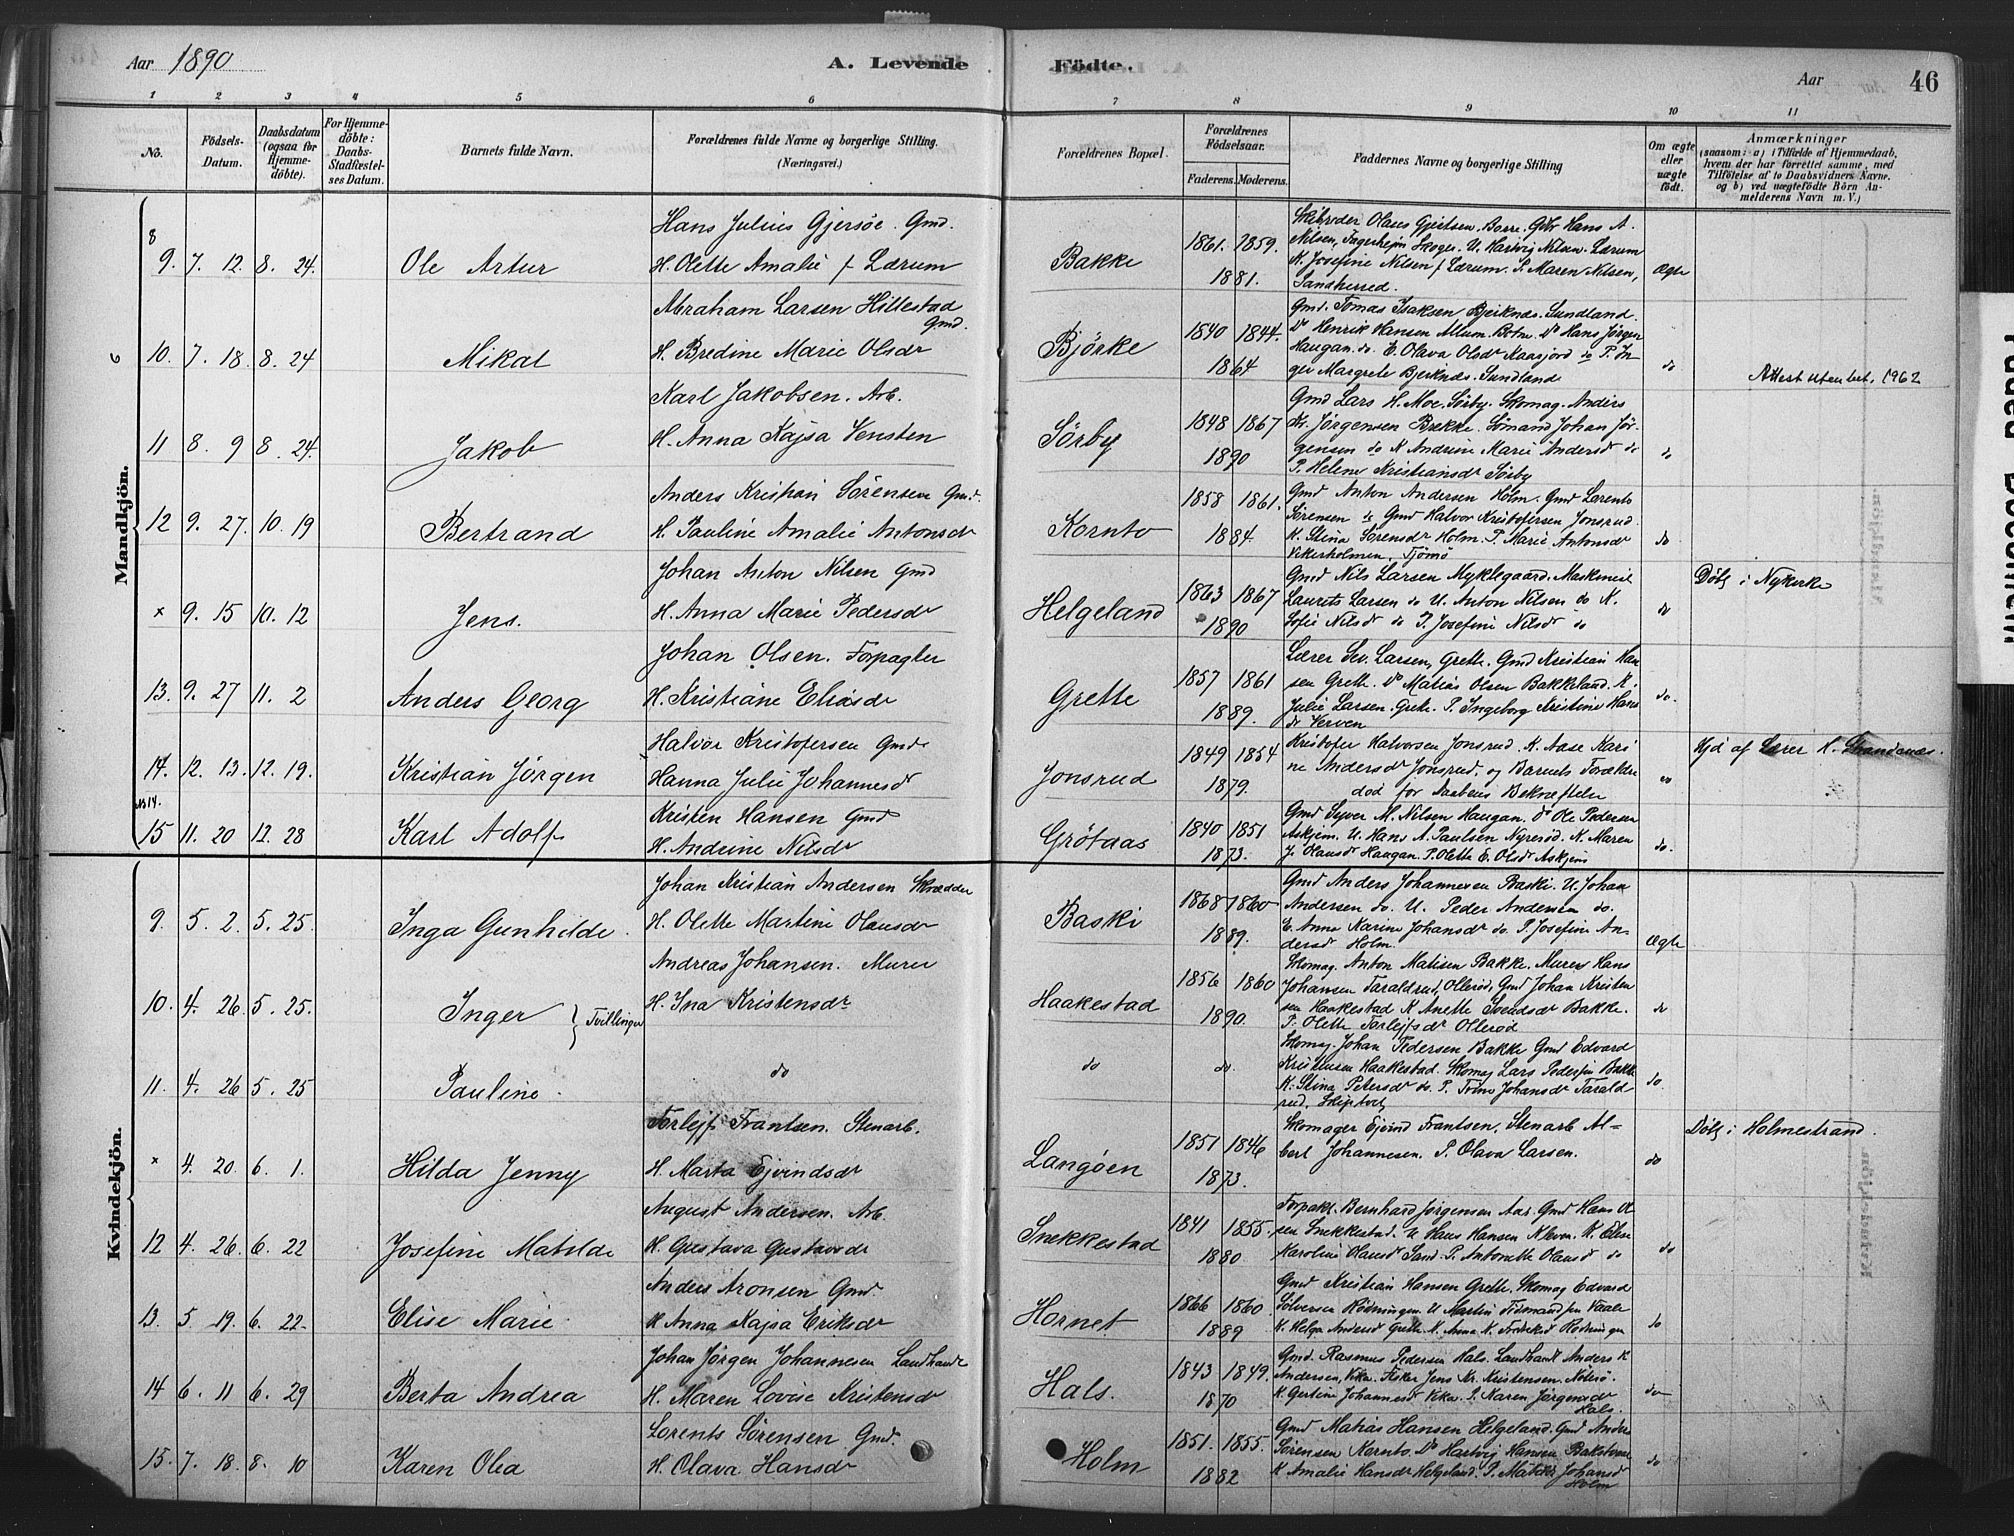 Aar 1890
A. Levende
Födte.
Aar
46
1 2 3 4 5 6 7 8 9 10 11
No.
Födsels-Datum.
Daabsdatum (ogsaa for Hjemme-döbte).
For Hjemme-döbte: Daabs-Stadfæstel-ses Datum.
Barnets fulde Navn.
Forældrenes fulde Navne og borgerlige Stilling.
(Næringsvei.)
Forældrenes Bopæl.
Forældrenes Födselsaar.
Faderens. Moderens.
Faddernes Navne og borgerlige Stilling
Om ægte eller uægte födt.
Anmærkninger
(saasom: a) i Tilfælde af Hjemmedaab, hvem der har forrettet samme, med Tilföielse af to Daabsvidners Navne. og b) ved uægtefödte Börn An-melderens Navn m. V.)
Mandkjön.
8
6
9. 7. 12. 8. 24. Ole Artur
Hans Julius Gjersöe. Gmd.
H. Olette Amalie f Lærum
Bakke
1861. 1859.
1881.
Skibreder Olaus Gjertsen. Borre. Gbr Hans A.
Nilsen, Fagerheim Skoger. U. Hartvig Nilsen. Lærum
K. Josefine Nilsen f Lærum. P. Maren Nilsen,
Sandherred.
Ægte
10. 7. 18. 8. 24 Mikal
Abraham Larsen Hillestad
Gmd.
H. Bredine Marie Olsdr
Bjørke
1840 1844.
1864
Gmd. Tomas Isaksen Bjerknes. Sundland.
Do Henrik Hansen Allum. Botne. Do Hans Jørgen
Haugan. do. E. Olava Olsdr Kaasjord do P. In-
ger Margrete Bjerknes. Sundland
do
Attest uten bet. 1962
11 8. 9 8. 24. Jakob
Karl Jakobsen. Arb.
H. Anna Kajsa Vensten
Sørby
1848 1867
1890
Gmd Lars H. Moe. Sørby. Skomag. Anders
Kr. Jørgensen Bække. Sømand Johan Jør-
gensen do K Andrine Marie Andersdr do
P. Heline Kristiansdr Sörby
do
12 9. 27. 10. 19 Bertrand
Anders Kristian Sørensen Gmd.
H. Pauline Amalie Antonsdr
Kornto
1858 1861.
1884.
Gmd Anton Andersen Holm. Gmd Lorents
Sørensen do Gmd Halvor Kristofersen Jonsrud.
K. Stina Sørensdr Holm. P. Marie Antonsdr
Vikerholmen, Tjømø
do
× 9. 15 10. 12 Jens.
Johan Anton Nilsen Gmd
H. Anna Marie Pedersdr
Helgeland
1863 1867
1890
Gmd Nils Larsen Myklegaard. Maskinist
Laurits Larsen do U. Anton Nilsen do K.
Sofie Nilsdr do P. Josefine Nilsdr do
do
Døbt i Nykirke
13. 9. 27 11. 2 Anders Georg
Johan Olsen. Forpagter
H. Kristiane Eliasdr
Grette
1857 1861
1889.
Lærer Sev. Larsen, Grette. Gmd Kristian Han
sen Grette. Do Matias Olsen Bakkeland. K.
Julie Larsen. Grette. P. Ingeborg Kristine Hans
dr Verven
do.
14. 12. 13. 12. 19. Kristian Jørgen
Halvor Kristofersen Gmd
Hanna Julie Johannesdr
Jonsrud
1849 1854
1879.
Kristofer Halvorsen Jonsrud. K. Aase Kari
ne Andersdr Jonsrud, og Barnets Forældre
død før Daabens Bekræftelse
do
Hjd af Lærer K. Strandenæs.
No 14.
15 11. 20 12. 28 Karl Adolf
Kristen Hansen Gmd
H. Andrine Nilsdr
Grøtaas
1840 1851
1873.
Gmd Syver M. Nilsen Haugan. Do Ole Pedersen
Askjem. U. Hans A. Paulsen Nyrerød. K. Maren
J. Olausdr Haugan. P. Olette E. Olsdr Askjem
do.
Kvindekjön.
9. 5. 2. 5. 25. Inga Gunhilde.
Johan Kristian Andersen Skrædder
H. Olette Martine Olausdr
Baski
1868 1860
1889.
Gmd Anders Johannesen Baski. U. Johan
Andersen do. U. Peder Andersen do.
E. Anne Karine Johansdr do. P. Josefine An-
dersdr Holm.
Ægte
10. 4. 26. 5. 25. Inger } Tvillinger
Andreas Johansen. Murer
H. Ina Kristensdr
Haakestad
1856 1860
1890.
Skomag. Anton Matisen Bakke. Murer Hans
Johansen Taraldrud, Ollerød, Gmd Johan Kristen
sen Haakestad K Anette Svendsdr Bakke.
P. Olette Torlejfsdr Ollerød
do
11. 4. 26 5. 25 Pauline.
do
do
do.
Skomag. Johan Pedersen Bakke Gmd Edvard
Kristensen Haakestad. Skomag Lars Pedersen Bakke
K. Stina Petersdr do. P. Trine Johansdr Tarald
rud. Skiptvet
do.
× 4. 20. 6. 1. Hilda Jenny
Torlejf Frantsen. Stenarb.
H. Marta Ejvindsdr
Langøen
1851 1846
1873.
Skomager Ejvind Frantsen, Stenarb Al-
bert Johannesen. P. Olava Larsen.
do
Døbt i Holmestrand.
12 4. 26. 6. 22 Josefine Matilde
August Andersen. Arb.
H. Gustava Gustavsdr
Snekkestad
1841 1855.
1880
Forpakt. Bernhard Jørgensen Aas. Gmd Hans
sen Snekkestad. U Hans Hansen Kleven. K. Elen
Karoline Olausdr Sand. P. Antonette Olausdr do
do
13. 5 19. 6. 22. Elise Marie
Anders Aronsen Gmd
H. Anna Kajsa Eriksdr
Hornet
1866 1860.
1889
Gmd Kristian Hansen Grette, Skomag Edvard
Sølversen Rødningen. U Martin Tidmandsen Vaale
K. Helga Andersdr Grette K. Anna K. Fredriksd Rødningen
do
14 6. 11 6. 29 Berta Andrea
Johan Jørgen Johannesen Landhandl
H. Maren Lovise Kristensdr
Hals.
1843 1849.
1870
Gmd. Rasmus Pedersen Hals. Landhandl Anders K
Andersen, Vika. Fisker Jens Kr. Kristensen. Nøterö.
K Gurine Johannesdr Vika. P. Karen Jørgensdr
Hals.
do
15. 7. 18. 8. 10 Karen Olea
Lorents Sørensen Gmd.
H. Olava Hansdr
Holm
1851. 1855.
1882
Gmd Matias Hansen Helgeland. Gmd Anders
Sørensen Kornto. Do Hartvig Hansen
K Amalie Hansdr Helgeland. P. Johansd
Holm
do